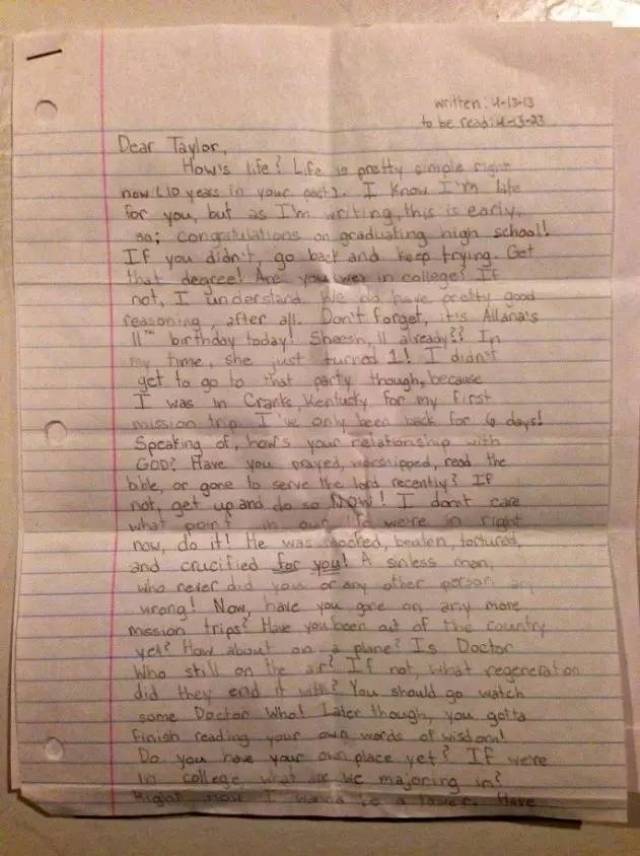 written: 4-13-13
to be read: 4-13-23
Dear Taylor,
How's life? Life is pretty simple right
now (10 years in your past). I know I'm late
for you, but as I'm writing, this is early,
so; congratulations on graduating high school!
If you didn't, go back and keep trying. Get
that degree! Are you/we in college? If
not, I understand. We do have pretty good
reasoning, after all. Don't forget, it's Allana's
11th birthday today! Sheesh, 11 already?? In
my time, she just turned 1! I didn't
get to go to that party though, because
I was in Cranks, Kentucky for my first
mission trip. I've only been back for 6 days!
Speaking of, how's your relationship with
GOD? Have you prayed, worshipped, read the
bible, or gone to serve the lord recently? If
not, get up and do so NOW! I don't care
what point in our life we're in right
now, do it! He was mocked, beaten, tortured,
and crucified for you! A sinless man,
who never did you or any other person any
wrong! Now, have you gone on any more
mission trips? Have you been out of the country
yet? How about on a plane? Is Doctor
Who still on the air? If not, what regeneration
did they end it with? You should go watch
some Doctor Who! Later though, you gotta
finish reading your own words of wisdom!
Do you have your own place yet? If we're
in college, what are we majoring in?
Right now I wanna be a lawer. Have